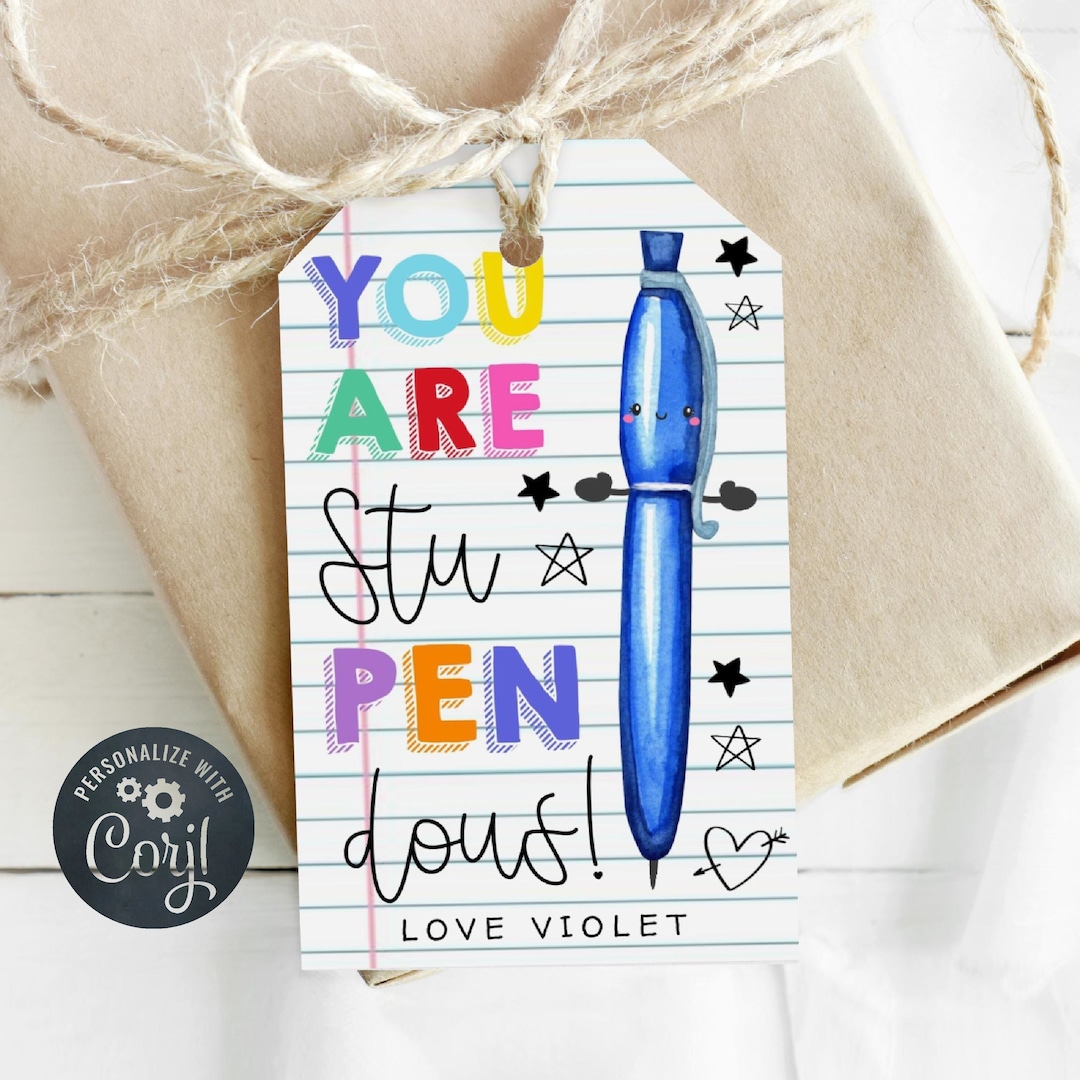 YOU
ARE
Stu
PEN
dous!
LOVE VIOLET
PERSONALIZE WITH
Corjl